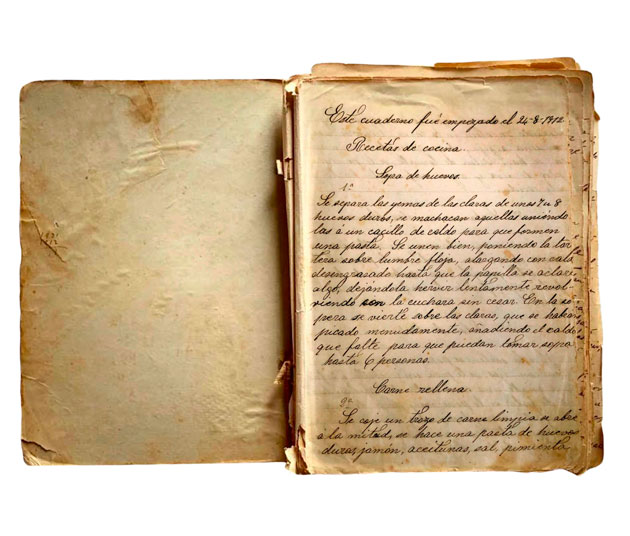 Este cuaderno fué empezado el 24-8-1912
Recetas de cocina
Sopa de huevos.
1ª
Se separa las yemas de las claras de unos 7 u 8
huevos duros, se machacan aquellas uniéndo
las á un cacillo de caldo para que formen
una pasta. Se unen bien, poniendo la tar
tera sobre lumbre floja, alargando con caldo
desengrasado hasta que la papilla se aclare
algo, dejándola hervir lentamente revol-
viendo con la cuchara sin cesar. En la so
pera se vierte sobre las claras, que se habrán
picado menudamente, añadiendo el caldo
que falte para que puedan tomar sopa
hasta 6 personas.
Carne rellena.
2ª
Se coje un trozo de carne limpia se abre
á la mitad, se hace una pasta de huevos
duros, jamon, aceitunas, sal, pimienta,